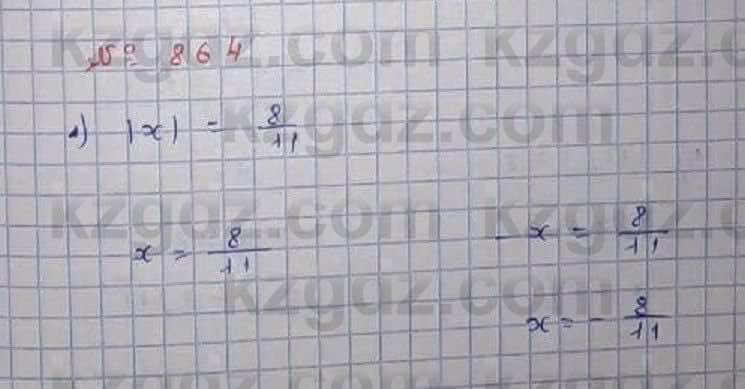 kzgdz.com kzgdz.com
№ 864
1) |x| = 8/11
kzgdz.com
kzgdz.com
x = 8/11
-x = 8/11
kzgdz.com
x = - 8/11